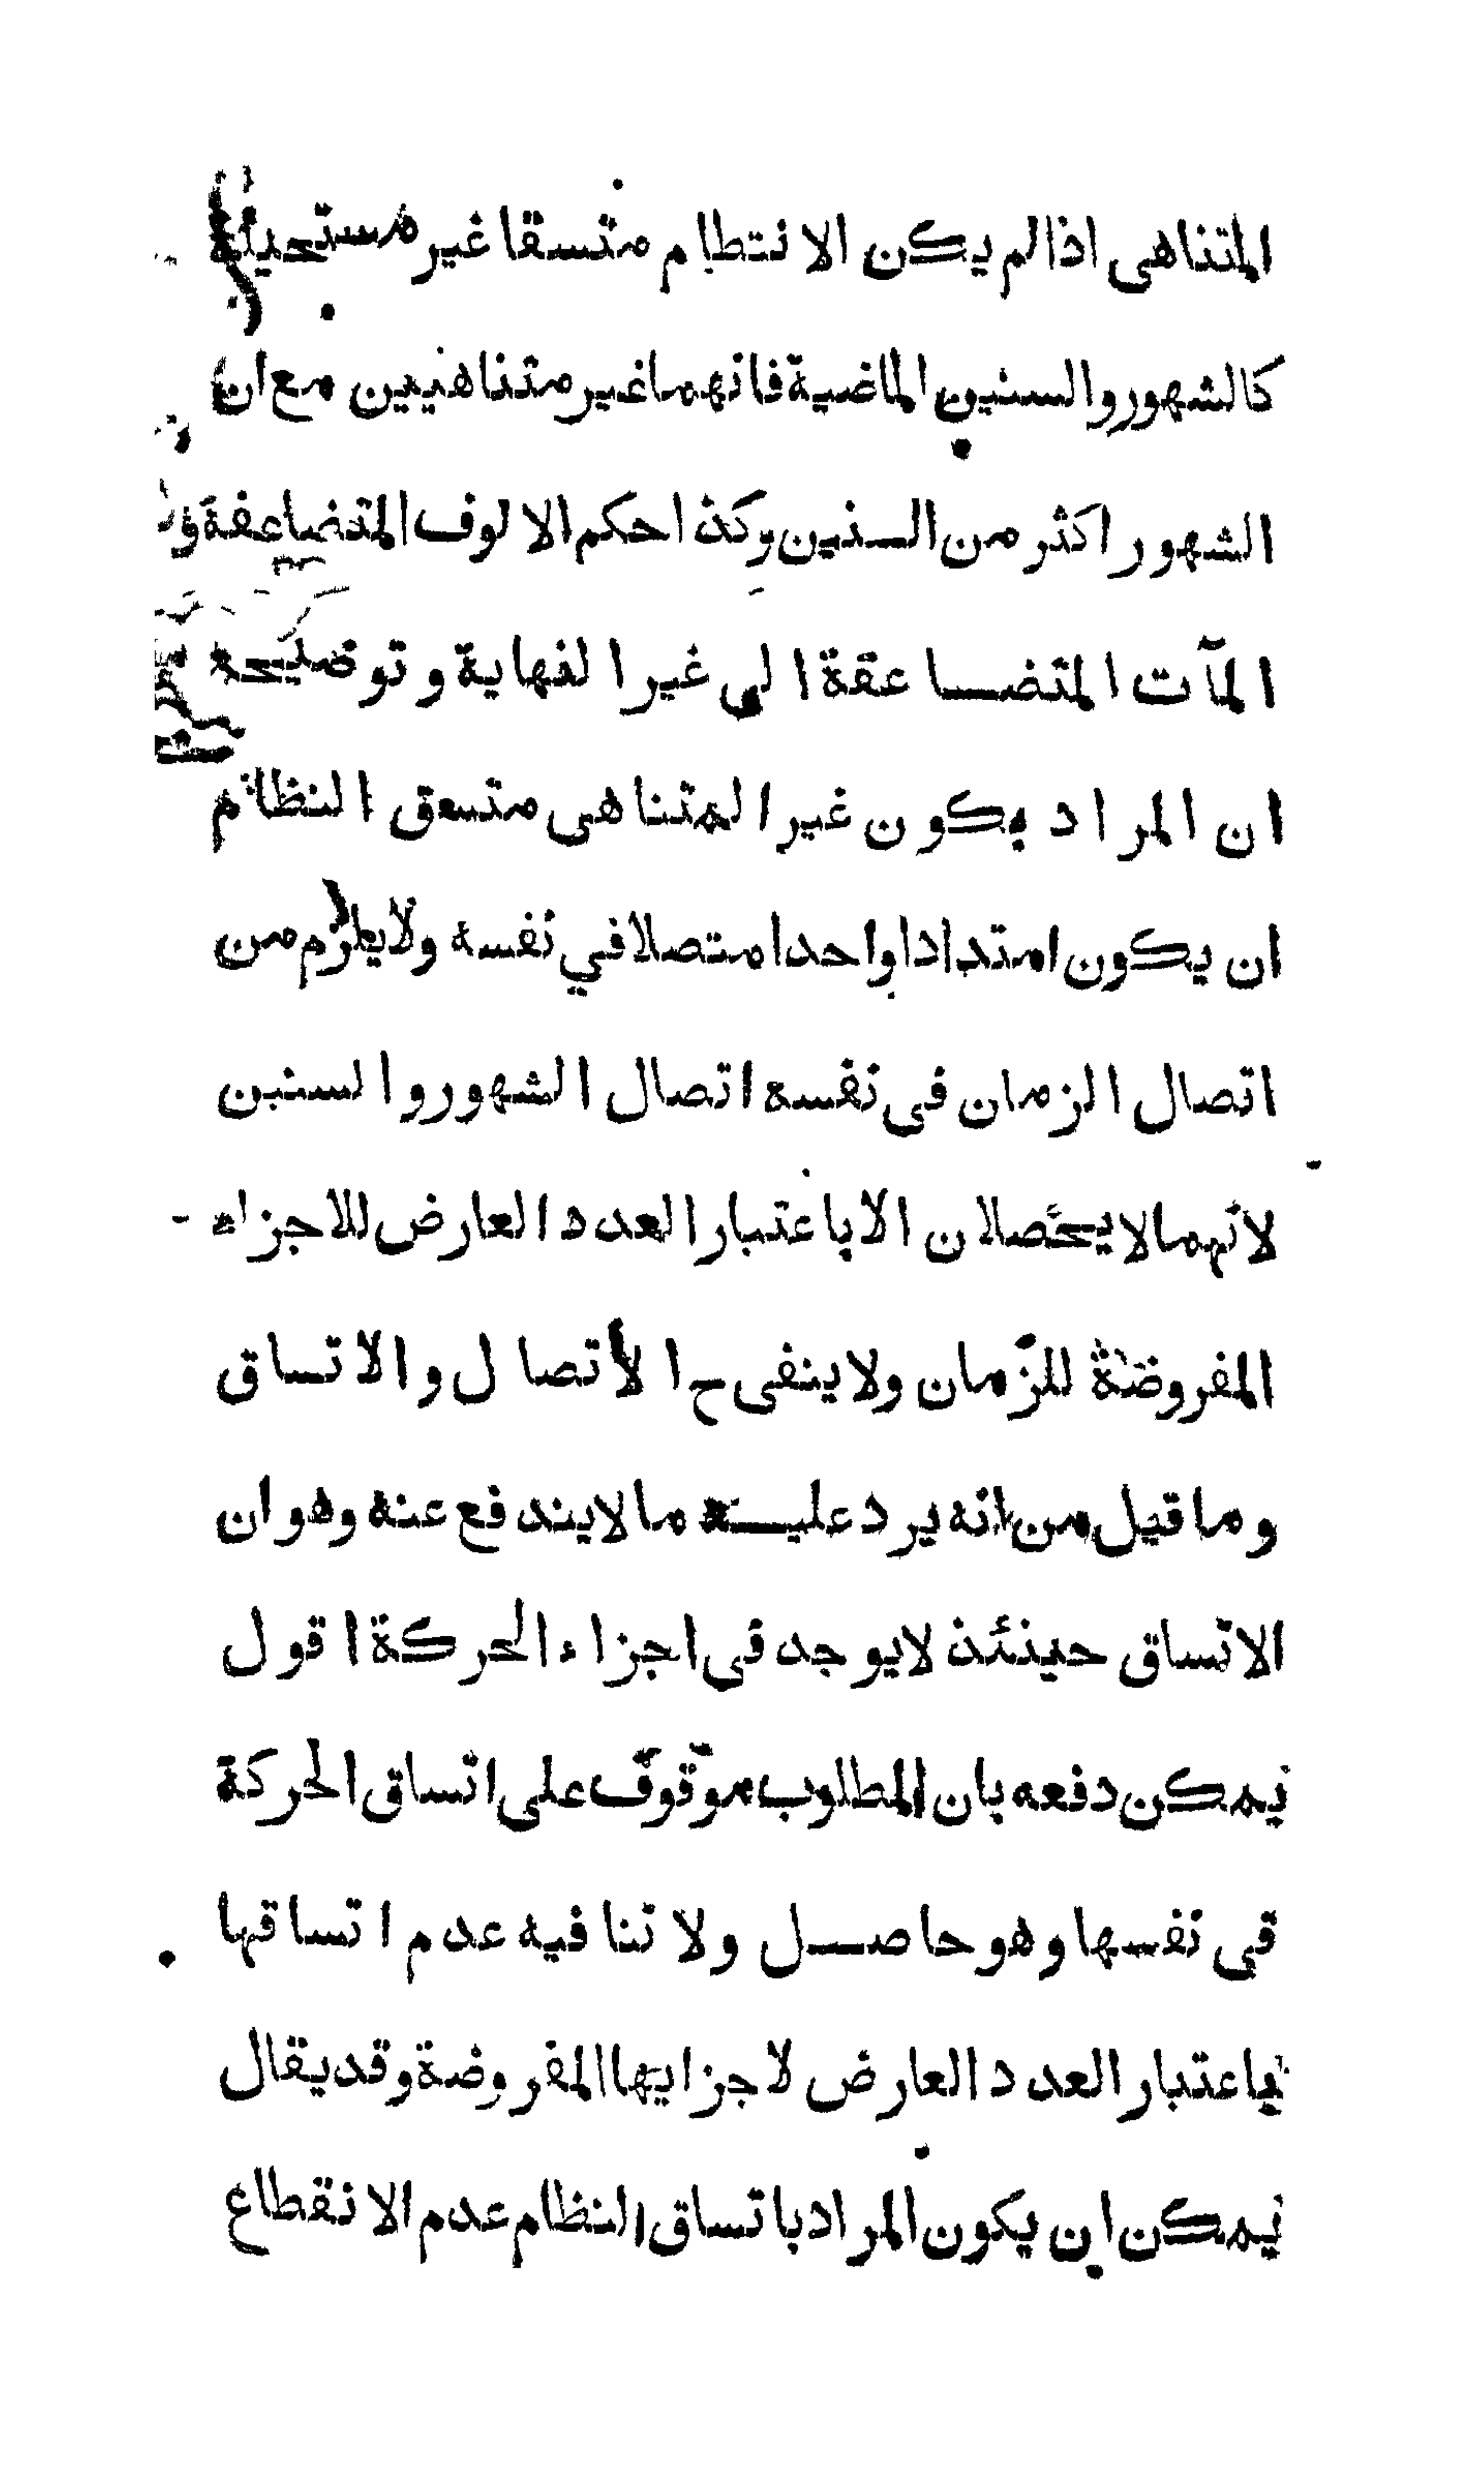 المتناهى اذا لم يكن الانتظام متسقا غير مستحيلة
كالشهور والسنين الماضية فانهما غير متناهيين مع ان
الشهور اكثر من السنين وكذا حكم الالوف المتضاعفة و
المآت المتضاعفة الى غير النهاية و توضيحه
ان المراد بكون غير المتناهى متسق النظام
ان يكون امتدادا واحدا متصلا في نفسه ولا يلزم من
اتصال الزمان فى نفسه اتصال الشهور والسنين
لانهما لا يحصلان الا باعتبار العدد العارض للاجزاء
المفروضة للزّمان ولا ينفى ح الأتصال والاتساق
وما قيل من انه يرد عليه ما لا يندفع عنه وهو ان
الاتساق حينئذ لا يوجد فى اجزاء الحركة اقول
يمكن دفعه بان المطلوب موقوف على اتساق الحركة
فى نفسها وهو حاصل ولا تنافيه عدم اتساقها
باعتبار العدد العارض لاجزايها المفروضة وقد يقال
يمكن ان يكون المراد باتساق النظام عدم الانقطاع